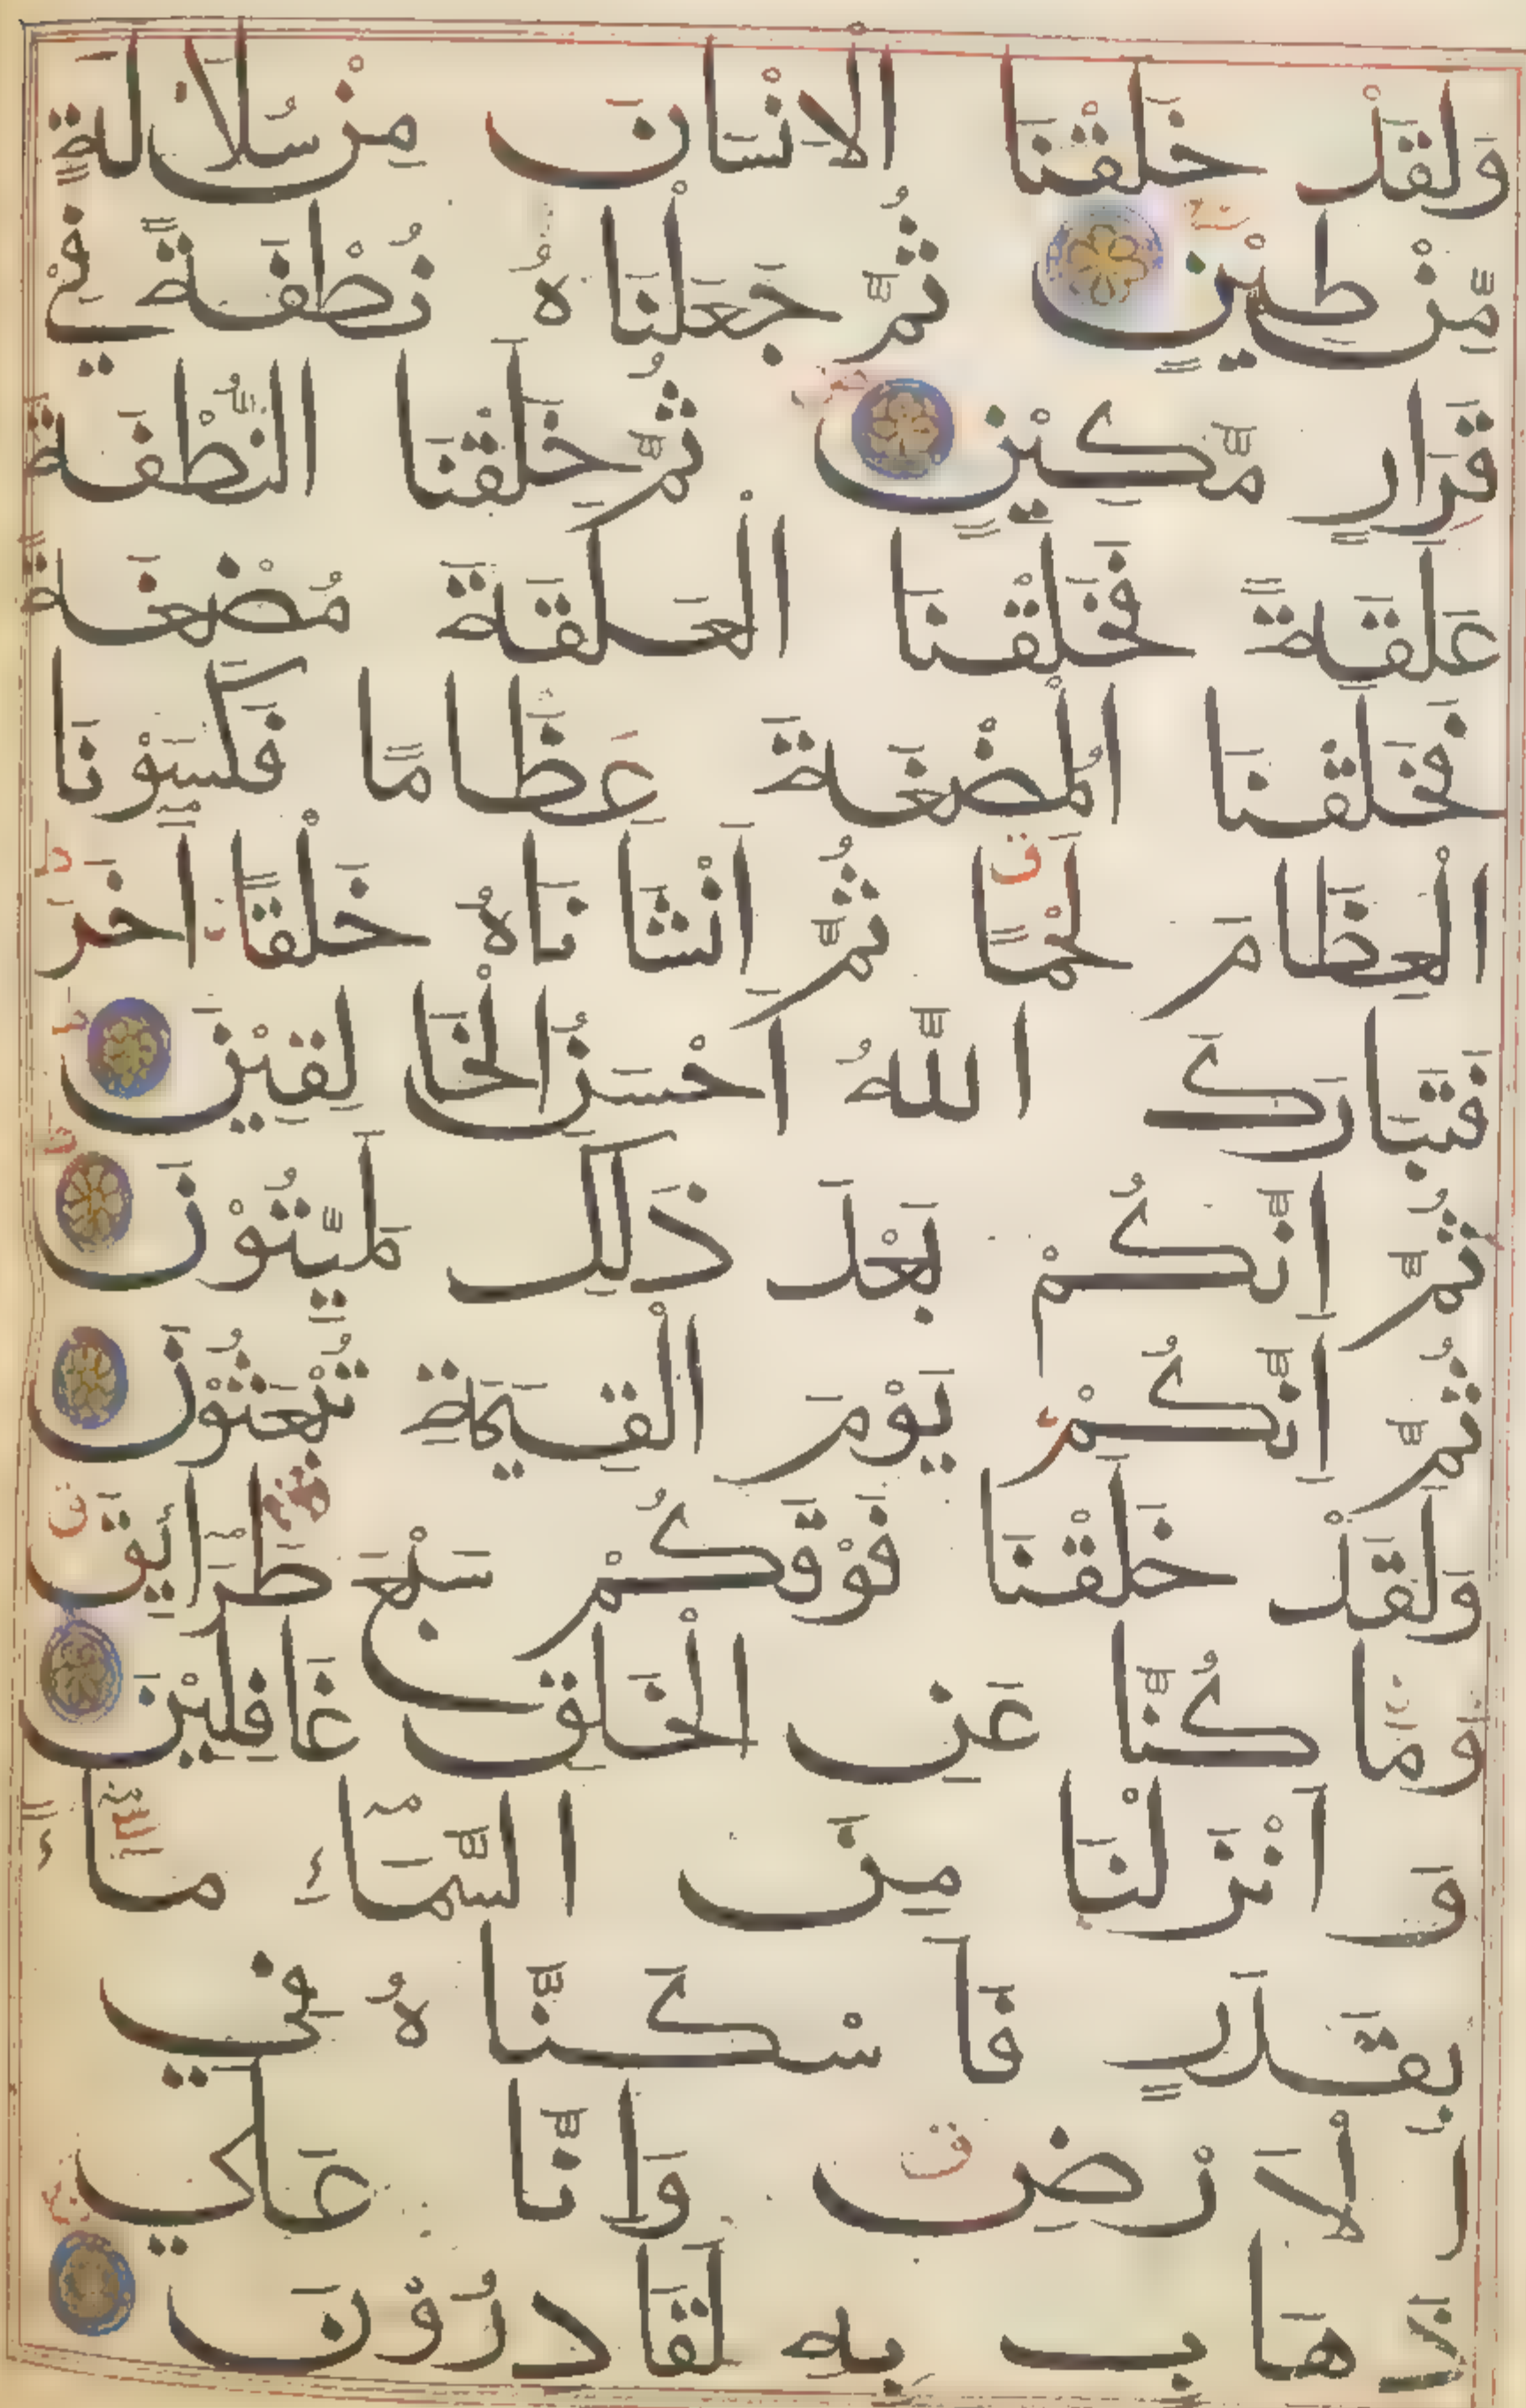 وَلَقَدْ خَلَقْنَا الْاِنْسَانَ مِنْ سُلَالَةٍ
مِّنْ طِيْنٍ ثُمَّ جَعَلْنَاهُ نُطْفَةً فِيْ
قَرَارٍ مَّكِيْنٍ ثُمَّ خَلَقْنَا النُّطْفَةَ
عَلَقَةً فَخَلَقْنَا الْعَلَقَةَ مُضْغَةً
فَخَلَقْنَا الْمُضْغَةَ عِظَامًا فَكَسَوْنَا
الْعِظَامَ لَحْمًا ثُمَّ اَنْشَانَاهُ خَلْقًا اٰخَرَ
فَتَبَارَكَ اللّٰهُ اَحْسَنُ الْخَالِقِيْنَ
ثُمَّ اِنَّكُمْ بَعْدَ ذَلِكَ لَمَيِّتُوْنَ
ثُمَّ اِنَّكُمْ يَوْمَ الْقِيَمَةِ تُبْعَثُوْنَ
وَلَقَدْ خَلَقْنَا فَوْقَكُمْ سَبْعَ طَرَآئِقَ
وَمَا كُنَّا عَنِ الْخَلْقِ غَافِلِيْنَ
وَ اَنْزَلْنَا مِنَ السَّمَآءِ مَاءً
بِقَدَرٍ فَاَسْكَنَّاهُ فِي
الْاَرْضِ وَاِنَّا عَلَي
ذَهَابٍ بِهِ لَقَادِرُوْنَ